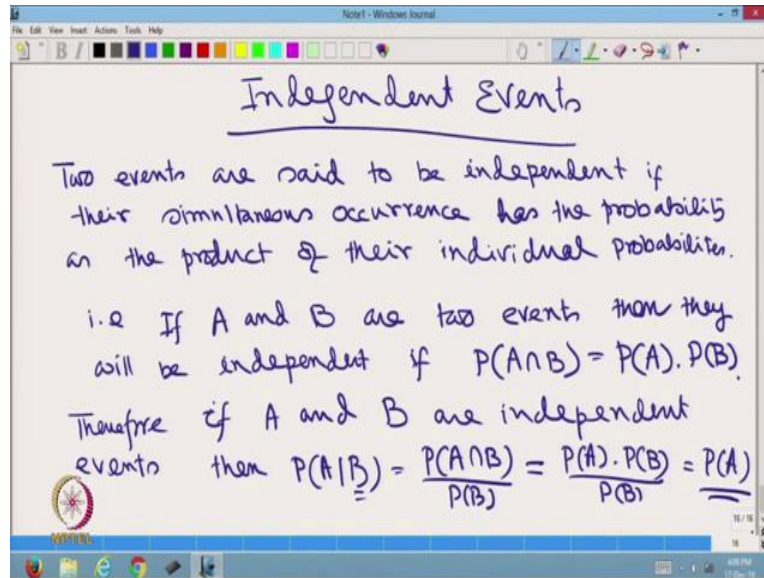 Note1 - Windows Journal
File Edit View Insert Actions Tools Help
Independent Events
Two events are said to be independent if
their simultaneous occurrence has the probability
as the product of their individual probabilities.
i.e If A and B are two events then they
will be independent if P(A∩B) = P(A). P(B).
Therefore if A and B are independent
events then P(A|B) = P(A∩B)/P(B) = P(A). P(B)/P(B) = P(A)
NPTEL
16 / 16
16